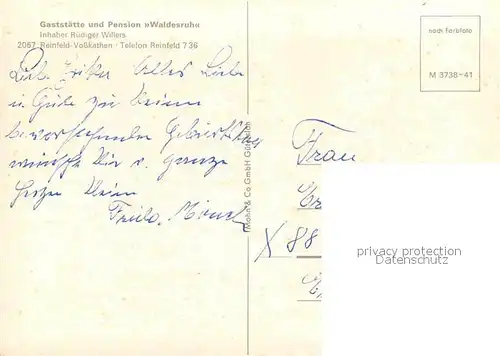 Gaststätte und Pension »Waldesruh«
Inhaber Rüdiger Willers
2067 Reinfeld-Voßkathen · Telefon Reinfeld 7 36
Liebe Erika Alles Liebe
u. Gute zu Deinem
bevorstehenden Geburtstag
wünscht Dir v. ganzem
Herzen Deine
Frieda
Mohn & Co GmbH Gütersloh
nach Farbfoto
M 3738-41
Frau
X 88
privacy protection
Datenschutz